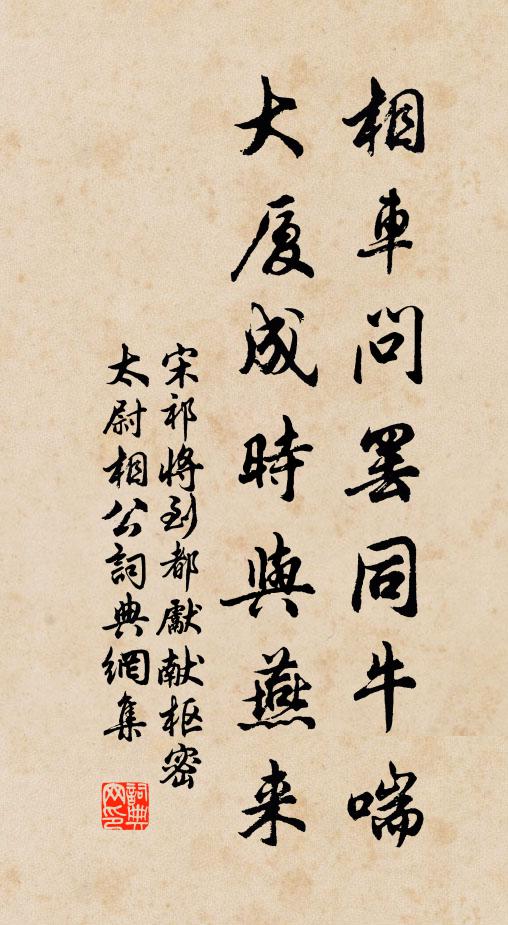 相車問罷同牛喘
大厦成時與燕来
宋祁將到都獻献枢密
太尉相公詞典網集
詞典网印